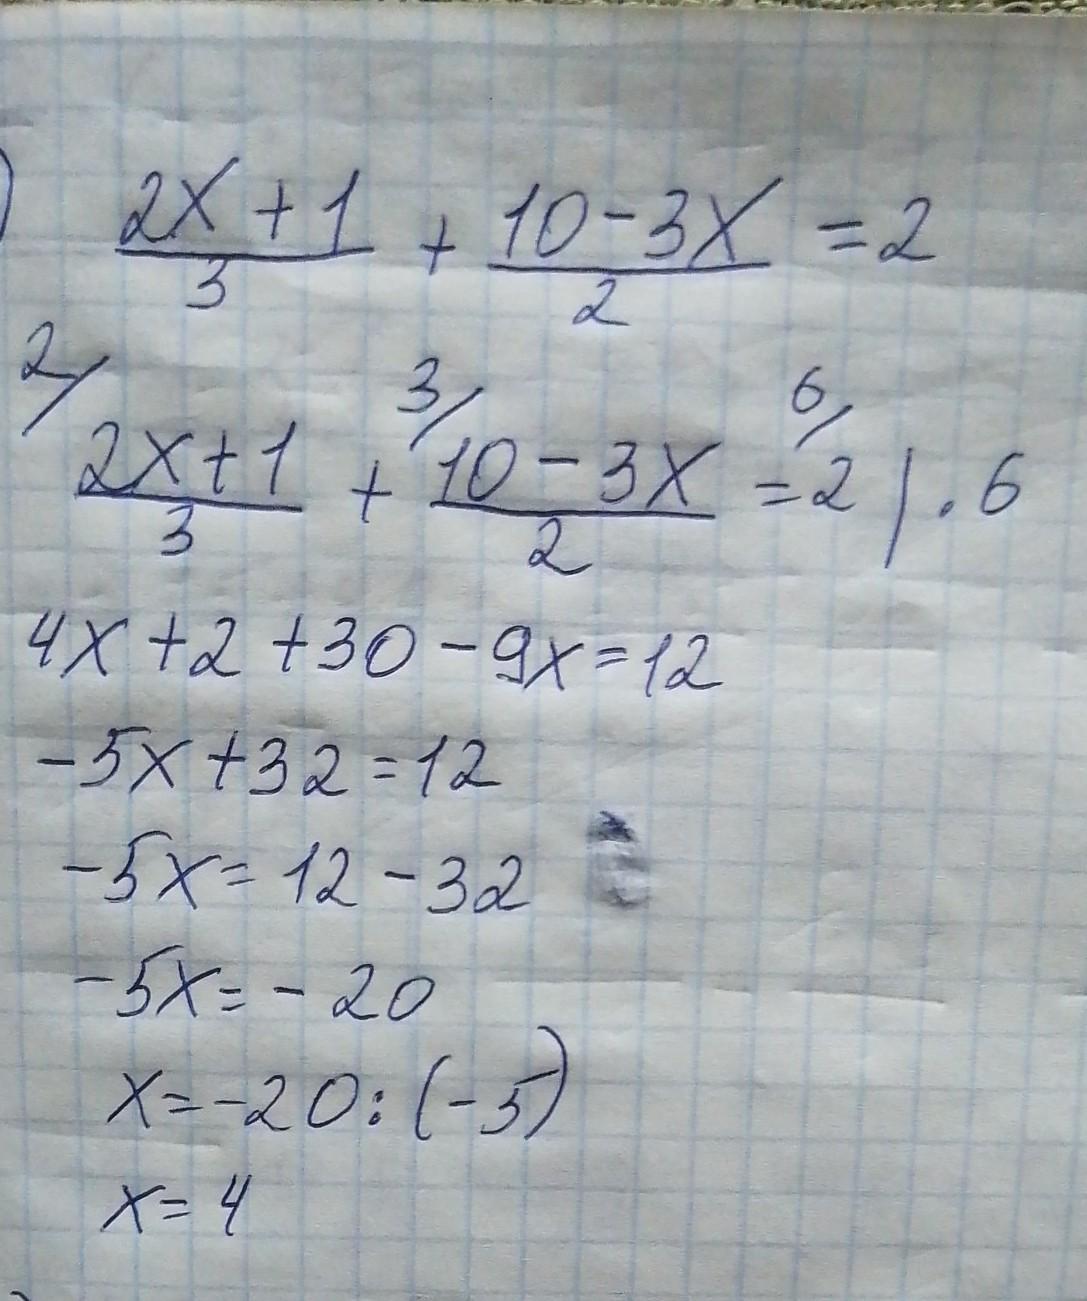 ) (2x+1)/3 + (10-3x)/2 = 2
2/ (2x+1)/3 + 3/ (10-3x)/2 = 6/ 2 | . 6
4x+2+30-9x=12
-5x+32=12
-5x=12-32
-5x=-20
x=-20:(-5)
x=4